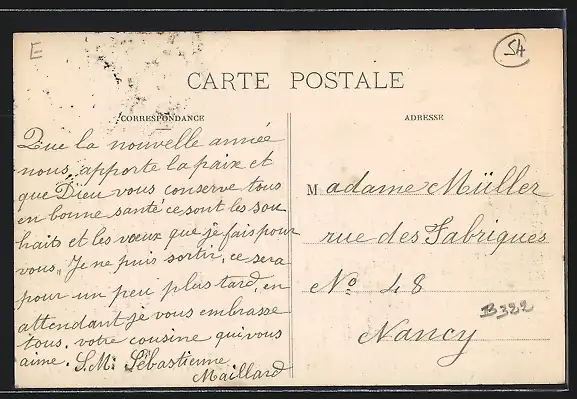 E
54
CARTE POSTALE
CORRESPONDANCE
ADRESSE
Que la nouvelle année
nous apporte la paix et
que Dieu vous conserve tous
en bonne santé ce sont les sou
haits et les vœux que je fais pour
vous, Je ne puis sortir, ce sera
pour un peu plus tard, en
attendant je vous embrasse
tous. votre cousine qui vous
aime. S. M. Sébastienne
Maillard
Madame Müller
rue des Fabriques
No 48
Nancy
B322